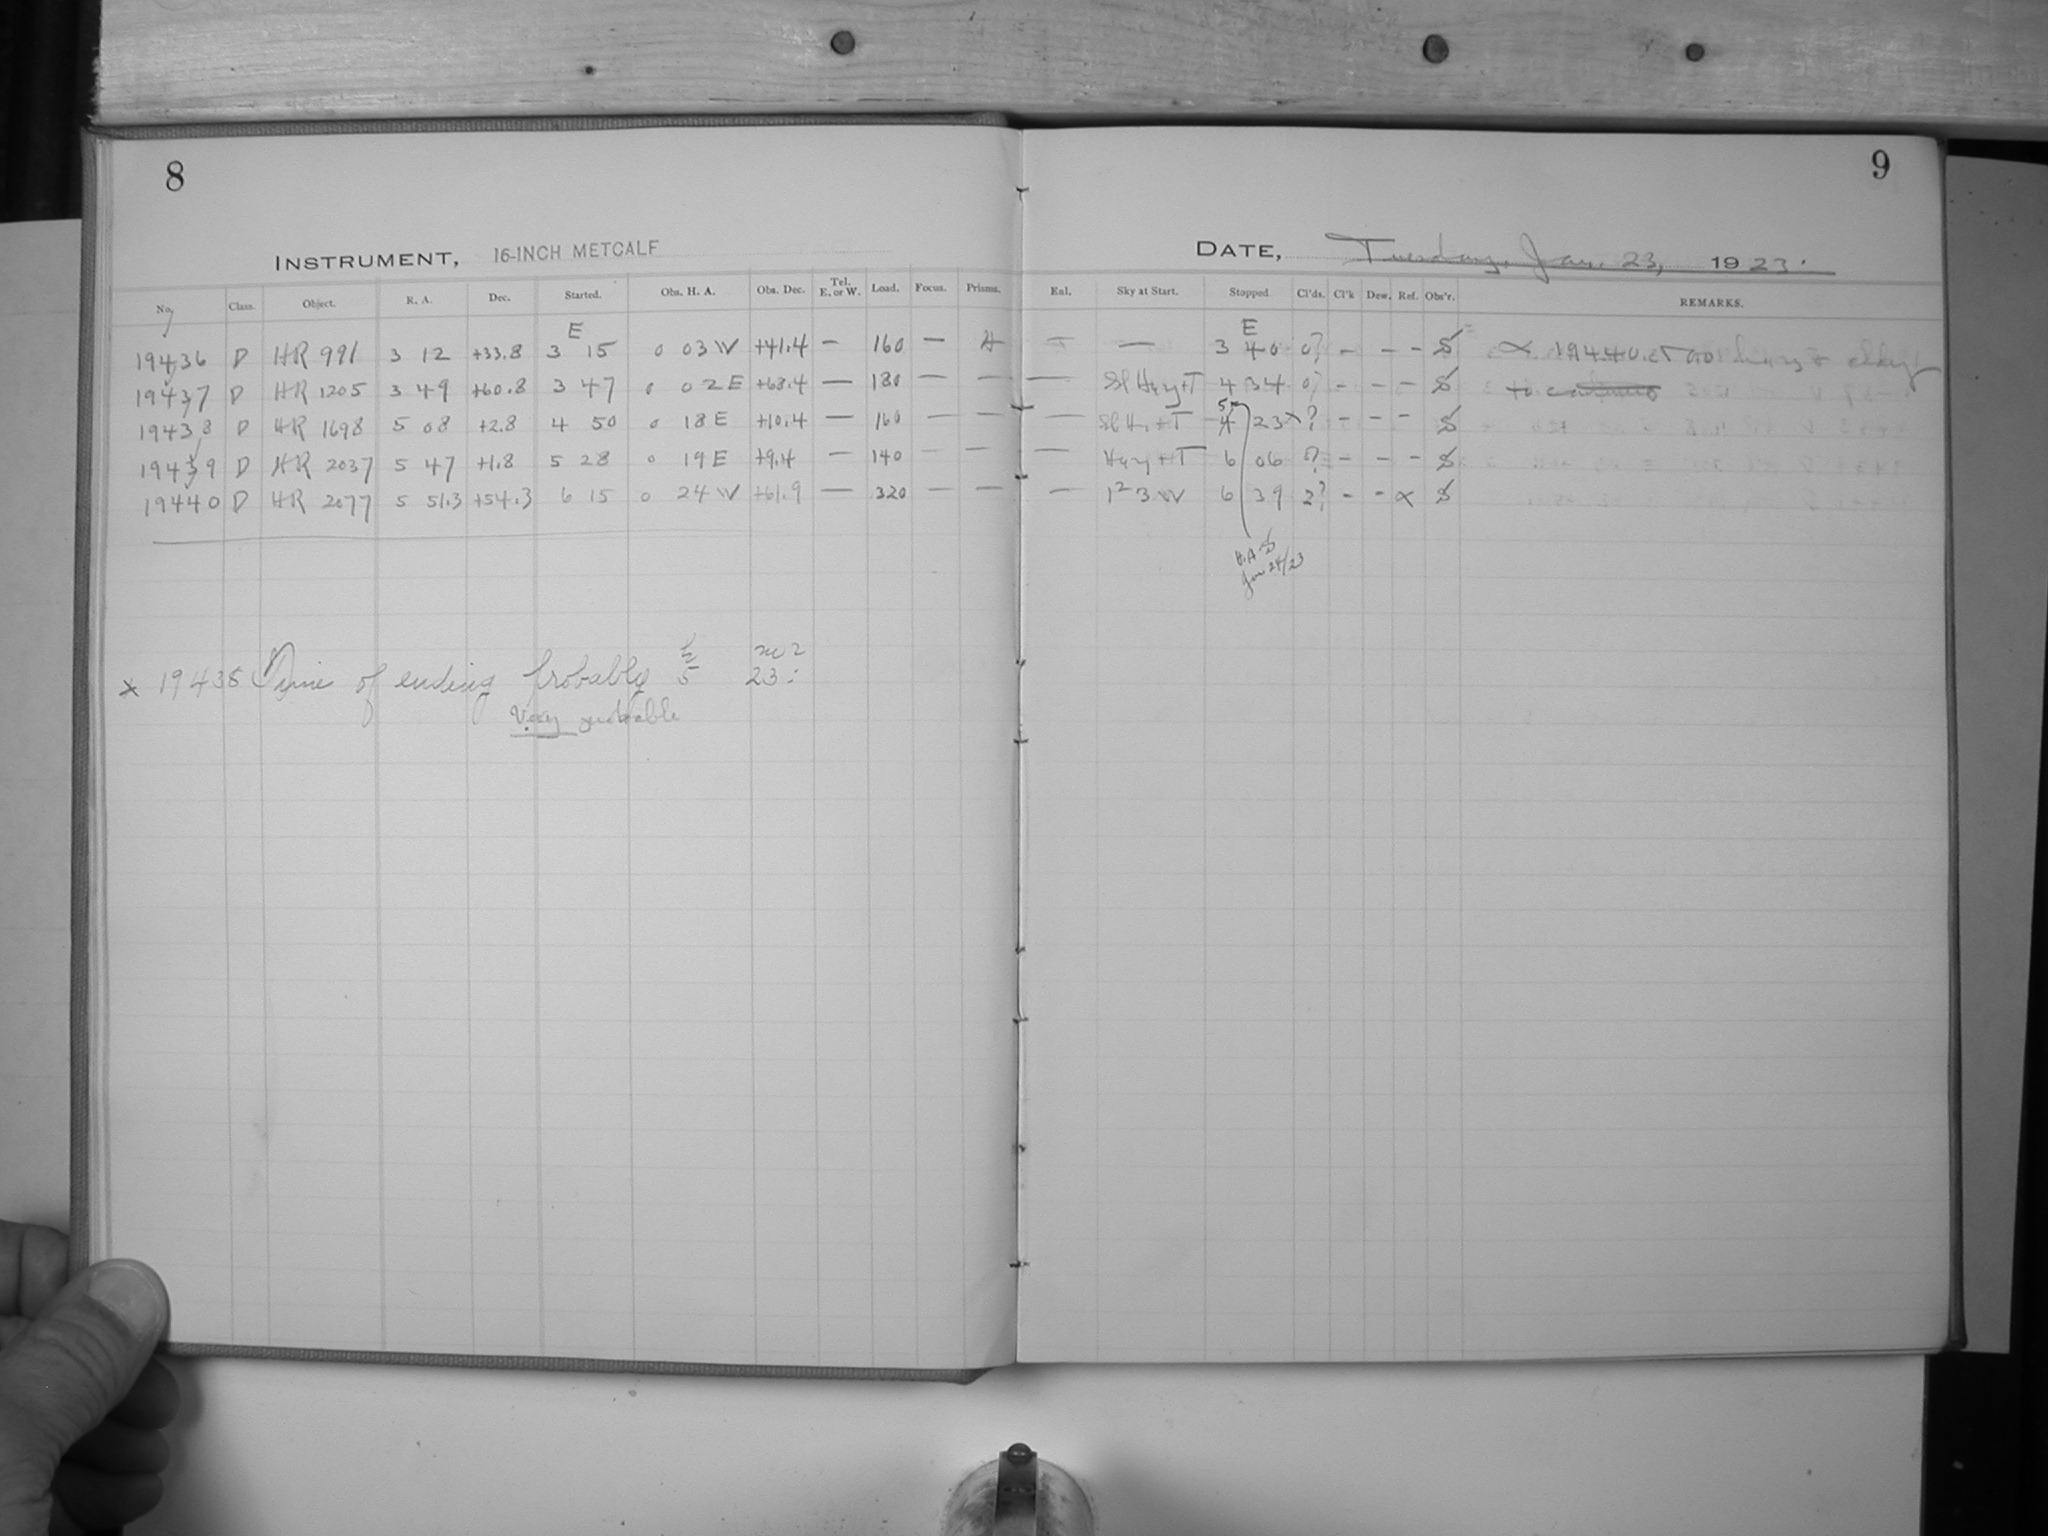 8
9
INSTRUMENT, 16-INCH METCALF
DATE, Tuesday, Jan. 23, 1923.
No. Class. Object. R. A. Dec. Started. Obs. H. A. Obs. Dec. Tel. E. or W. Load. Focus. Prisms. Enl. Sky at Start. Stopped Cl'ds. Cl'k Dew. Ref. Obs'r. REMARKS.
E E
19436 D HR 991 3 12 +33.8 3 15 0 03 W +41.4 — 160 — — — 3 40 0? - - - S × 19440. ct no
19437 D HR 1205 3 49 +60.8 3 47 0 02 E +68.4 — 180 — — — Sl Hazy + T 4 34 0? - - - S to
5
19438 D HR 1698 5 08 +2.8 4 50 0 18 E +10.4 — 160 — — — Sl H. + T 4 23 × ? - - - S
19439 D HR 2037 5 47 +1.8 5 28 0 19 E +9.4 — 140 — — — Hazy + T 6 06 ? - - - S
19440 D HR 2077 5 51.3 +54.3 6 15 0 24 W +61.9 — 320 — — — 1 2 3 W 6 39 2? - - × S
H.A.S
Jan 24/23
× 19438 Time of ending probably 5 23:
Very probable